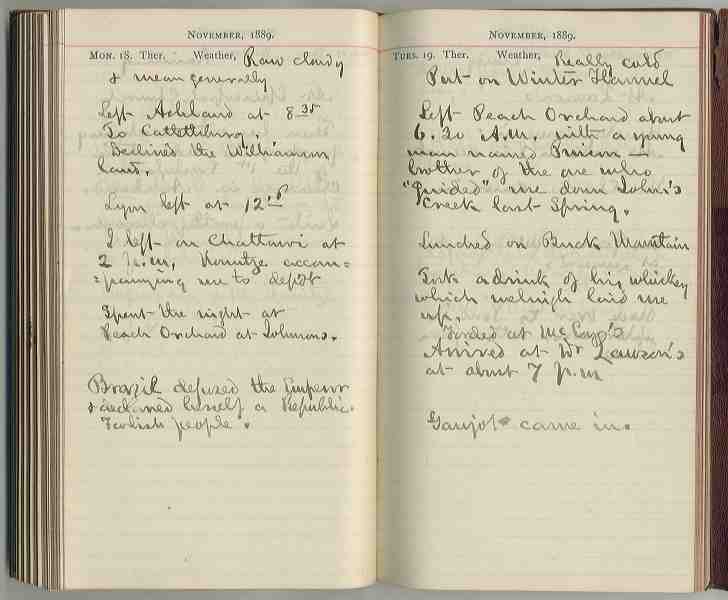 November, 1889.
Mon. 18. Ther. Weather, Raw cloudy
& mean generally
Left Ashland at 8 35
To Catlettsburg.
Declined the Williamson
land.
Lyon left at 12
I left on Chattawi at
2 p.m. Kountze accom=
=panying me to depot
Spent the night at
Peach Orchard at Johnsons.
Brazil defused the Emperor
& declared herself a Republic.
Foolish people.
November, 1889.
Tues. 19. Ther. Weather, Really cold
Put on Winter Flannel
Left Peach Orchard about
6.30 A.M. with a young
man named —
brother of the one who
"guided" me down John's
Creek last Spring.
Lunched on Buck Mountain
Took a drink of his whiskey
which nehigh laid me
up.
Forded at McCoy's
Arrived at Wr Lawson's
at about 7 p.m
Gaujot came in.